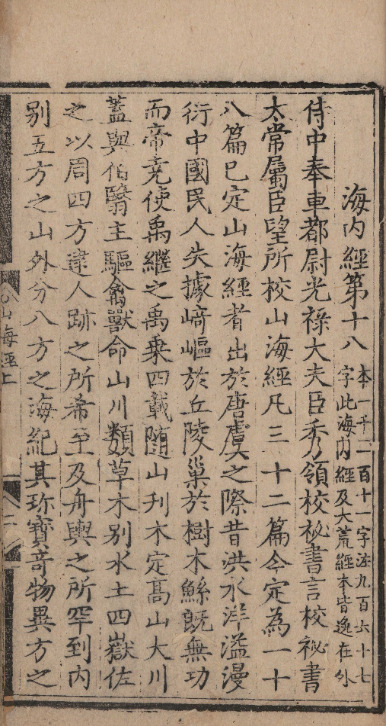 海内經第十八 本一千一百十一字注九百六十七
字此海内經及大荒經本皆逸在外
侍中奉車都尉光禄大夫臣秀領校祕書言校祕書
太常屬臣望所校山海經凡三十二篇今定為一十
八篇已定山海經者出於唐虞之際昔洪水洋溢漫
衍中國民人失據﨑嶇於丘陵巢於樹木鯀既無功
而帝堯使禹繼之禹乗四載随山刋木定髙山大川
蓋與伯翳主驅禽獸命山川類草木别水土四嶽佐
之以周四方逮人跡之所希至及舟輿之所罕到内
别五方之山外分八方之海紀其珍寶竒物異方之
山海經上